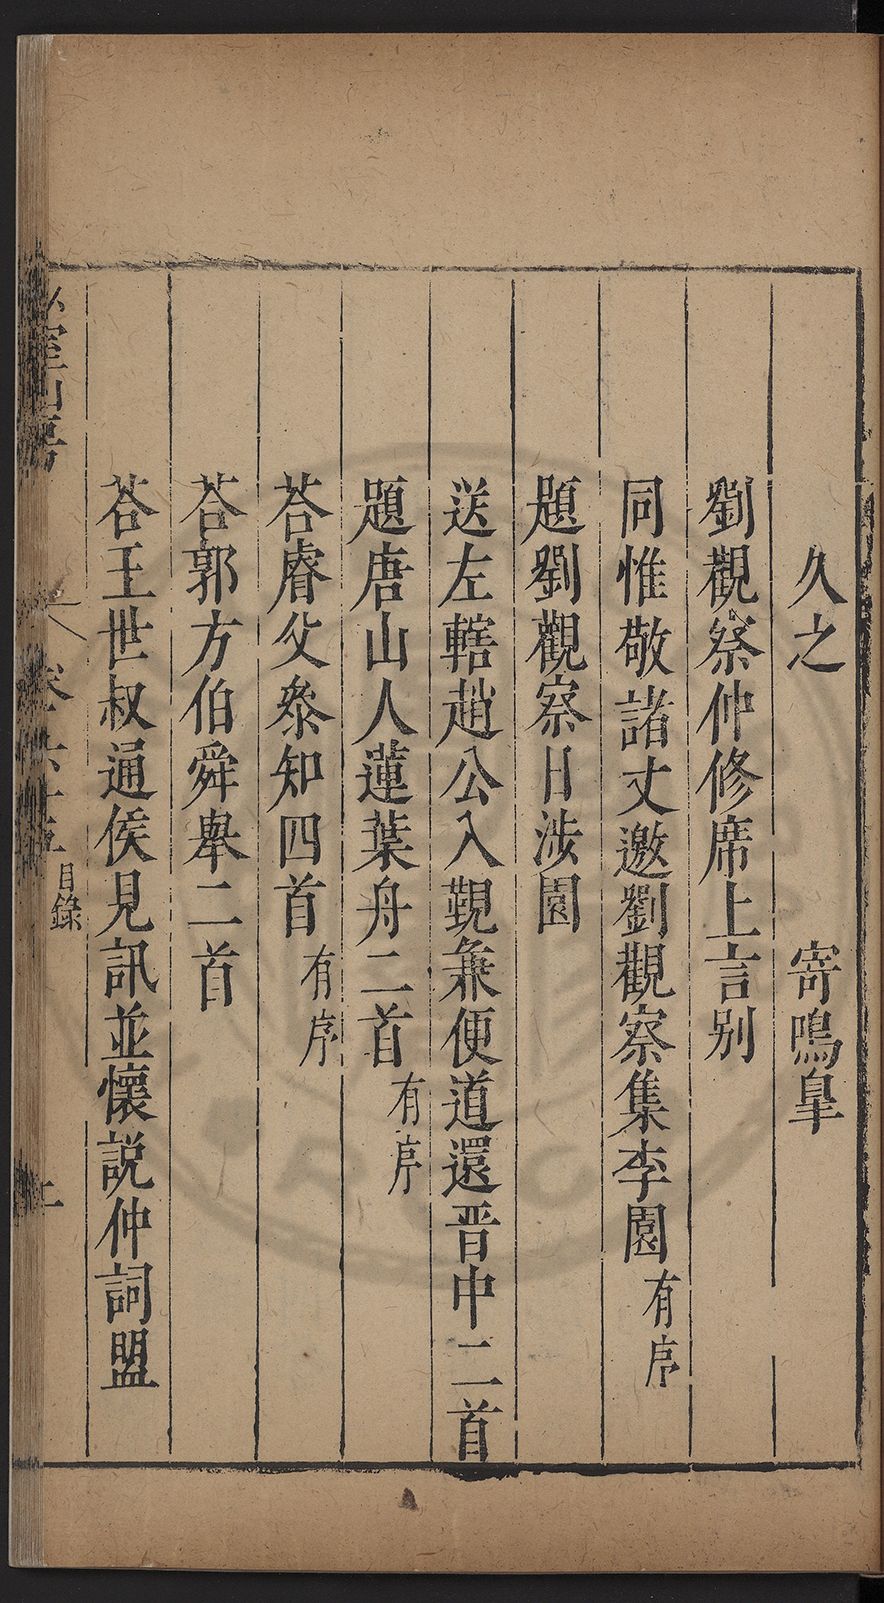 久之　寄鳴臯
劉觀察仲修席上言别
同惟敬諸丈邀劉觀察集李園有序
題劉觀察日涉園
送左轄趙公入覲兼便道還晋中二首
題唐山人蓮葉舟二首有序
荅睿父叅知四首有序
荅郭方伯舜舉二首
荅王世叔通侯見訊並懷説仲詞盟
山房
目錄